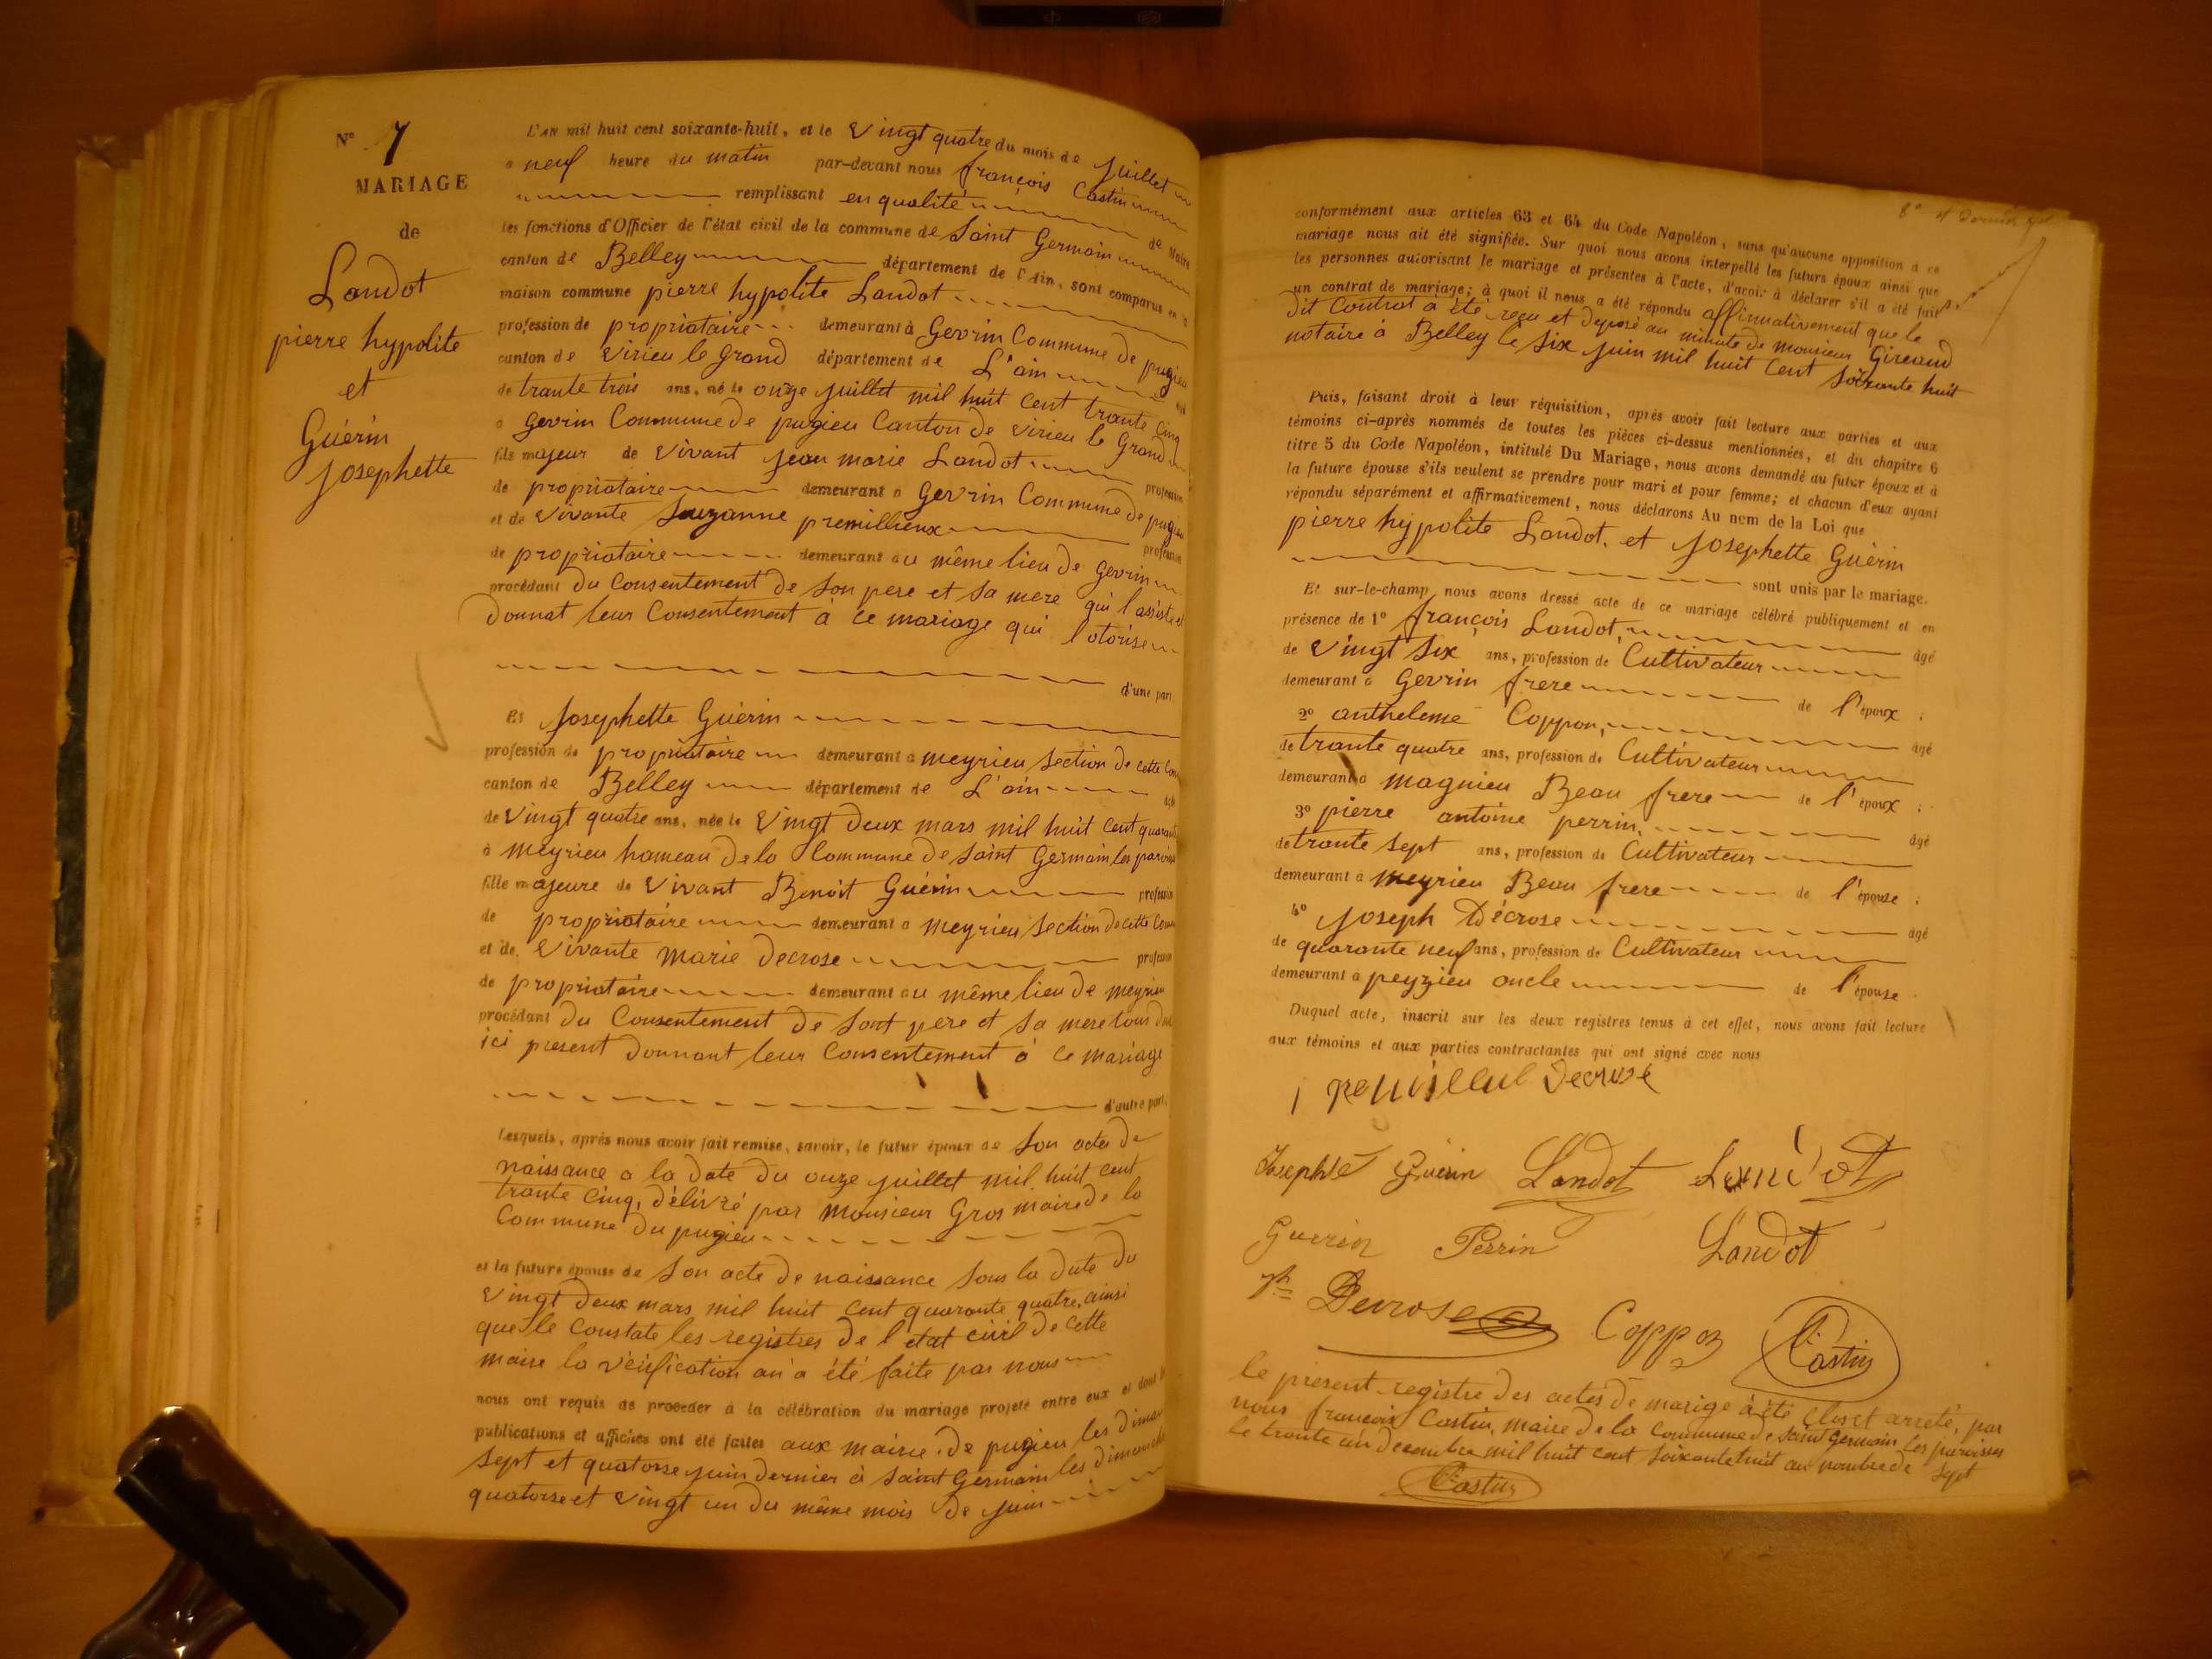 N° 7
MARIAGE
de
Landot
pierre hypolite
et
Guérin
Josephette
L'AN mil huit cent soixante-huit, et le vingt quatre du mois de juillet
a neuf heure du matin par-devant nous françois Castin
remplissant en qualité de Maire
les fonctions d'Officier de l'état civil de la commune de Saint Germain
canton de Belley département de l'Ain, sont comparus en la
maison commune pierre hypolite Landot
profession de propriataire demeurant à Gevrin Commune de pugieu
canton de Virieu le Grand département de L'ain
de trante trois ans, né le onze juillet mil huit cent trante cinq
a gevrin Commune de pugieu Canton de Virieu le Grand
fils majeur de vivant jean marie Landot profession
de propriataire demeurant a Gevrin Commune de pugieu
et de vivante Souzanne premillieux profession
de propriataire demeurant au même lieu de gevrin
procédant du Consentement de Son pere et Sa mere qui l'assiste et
donnat leur Consentement à ce mariage qui l'otorise
d'une part
Et Josephette Guérin
profession de propriataire demeurant a meyrieu Section de cette Com
canton de Belley département de L'ain
de vingt quatre ans, née le vingt deux mars mil huit cent quarante
à meyrieu hameau de la Commune de Saint Germain les paroisses
fille majeure de vivant Benoit Guérin profession
de propriataire demeurant a meyrieu Section de cette Com
et de vivante marie Decrose profession
de propriataire demeurant au même lieu de meyrieu
procédant du Consentement de Sont pere et Sa mere tous deux
ici present donnant leur Consentement à ce mariage
d'autre part.
Lesquels, après nous avoir fait remise, savoir, le futur époux de Son acte de
naissance a la date du onze juillet mil huit cent
trante cinq, délivré par monsieur Gros maire de la
Commune du pugieu
et la future épouse de Son acte de naissance Sous la date du
vingt deux mars mil huit cent quarante quatre, ainsi
que le Constate les registres de l'état civil de cette
maire la vérification an a été faite par nous
nous ont requis de procéder à la célébration du mariage projeté entre eux et dont les
publications et affiches ont été faites aux mairie de pugieu les diman
Sept et quatorse juin dernier à Saint Germain les dimanche
quatorse et vingt un du même mois de juin
conformément aux articles 63 et 64 du Code Napoléon, sans qu'aucune opposition à ce
mariage nous ait été signifiée. Sur quoi nous avons interpellé les futurs époux ainsi que
les personnes autorisant le mariage et présentes à l'acte, d'avoir à déclarer s'il a été fait
un contrat de mariage; à quoi il nous a été répondu affirmativement que le
dit Contrat a été reçu et deposé au minute de monsieur Gireaud
notaire à Belley le Six juin mil huit cent Soixante huit
Puis, faisant droit à leur réquisition, après avoir fait lecture aux parties et aux
témoins ci-après nommés de toutes les pièces ci-dessus mentionnées, et du chapitre 6
titre 5 du Code Napoléon, intitulé Du Mariage, nous avons demandé au futur époux et à
la future épouse s'ils veulent se prendre pour mari et pour femme; et chacun d'eux ayant
répondu séparément et affirmativement, nous déclarons Au nom de la Loi que
pierre hypolite Landot. et Josephette Guérin
sont unis par le mariage.
Et sur-le-champ nous avons dressé acte de ce mariage célébré publiquement et en
présence de 1° françois Landot, âgé
de vingt Six ans, profession de Cultivateur
demeurant a gevrin frere de l'époux ;
2° anthelme Coppon, âgé
de trante quatre ans, profession de Cultivateur
demeurant a magnieu Beau frere de l'époux ;
3° pierre antoine perrin, âgé
de trante sept ans, profession de Cultivateur
demeurant à meyrieu Beau frere de l'épouse ;
4° Joseph Décrose âgé
de quarante neuf ans, profession de Cultivateur
demeurant à peyzieu oncle de l'épouse
Duquel acte, inscrit sur les deux registres tenus à cet effet, nous avons fait lecture
aux témoins et aux parties contractantes qui ont signé avec nous
Decrose
Guérin Landot Landot
Guerin Perrin Landot
Decrose Coppon Castin
le present registre des actes de marige à été Clos et arreté, par
nous françois Castin, maire de la Commune de Saint Germain les paroisses
le trante un decembre mil huit cent Soixante huit au nombre de Sept
Castin